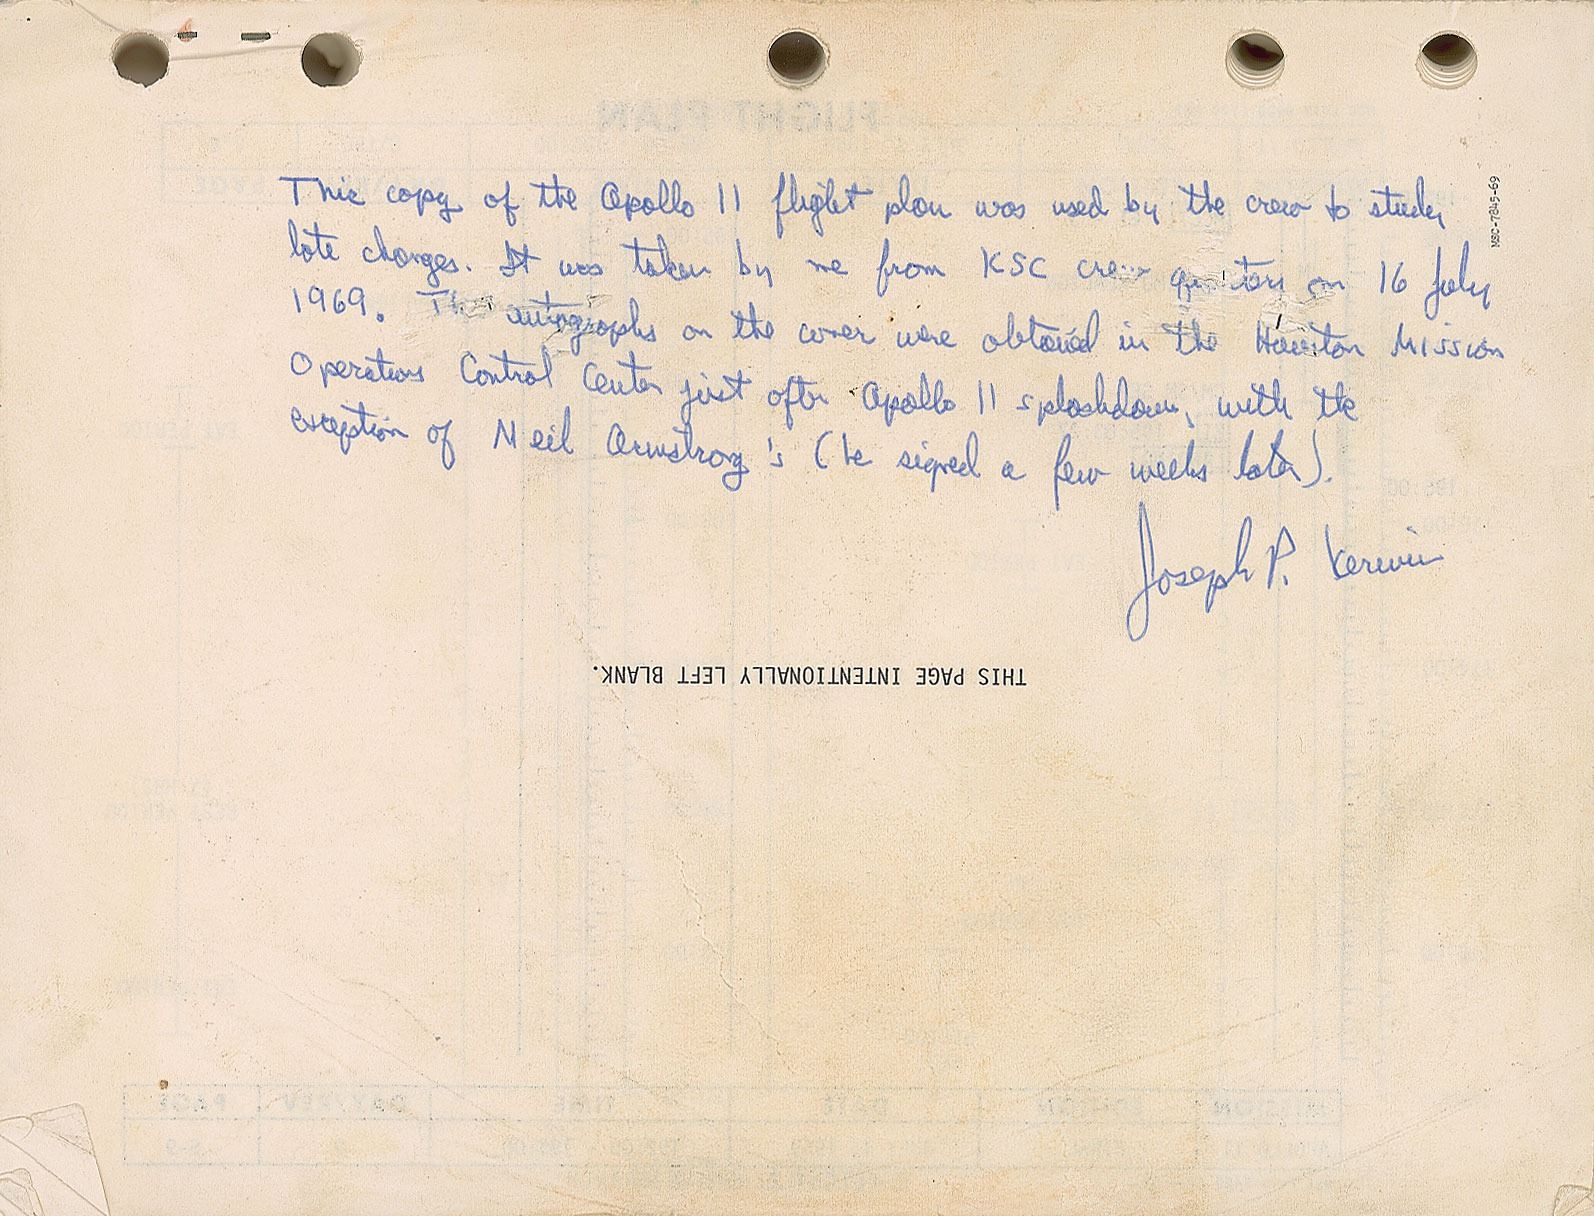 This copy of the Apollo 11 flight plan was used by the crew to study
late changes. It was taken by me from KSC crew quarters on 16 July
1969. The autographs on the cover were obtained in the Houston Mission
Operations Control Center just after Apollo 11 splashdown, with the
exception of Neil Armstrong's (he signed a few weeks later).
Joseph P. Kerwin
THIS PAGE INTENTIONALLY LEFT BLANK.
MSC-7845-69
FLIGHT PLAN
MISSION EDITION DATE TIME DAY/REV PAGE